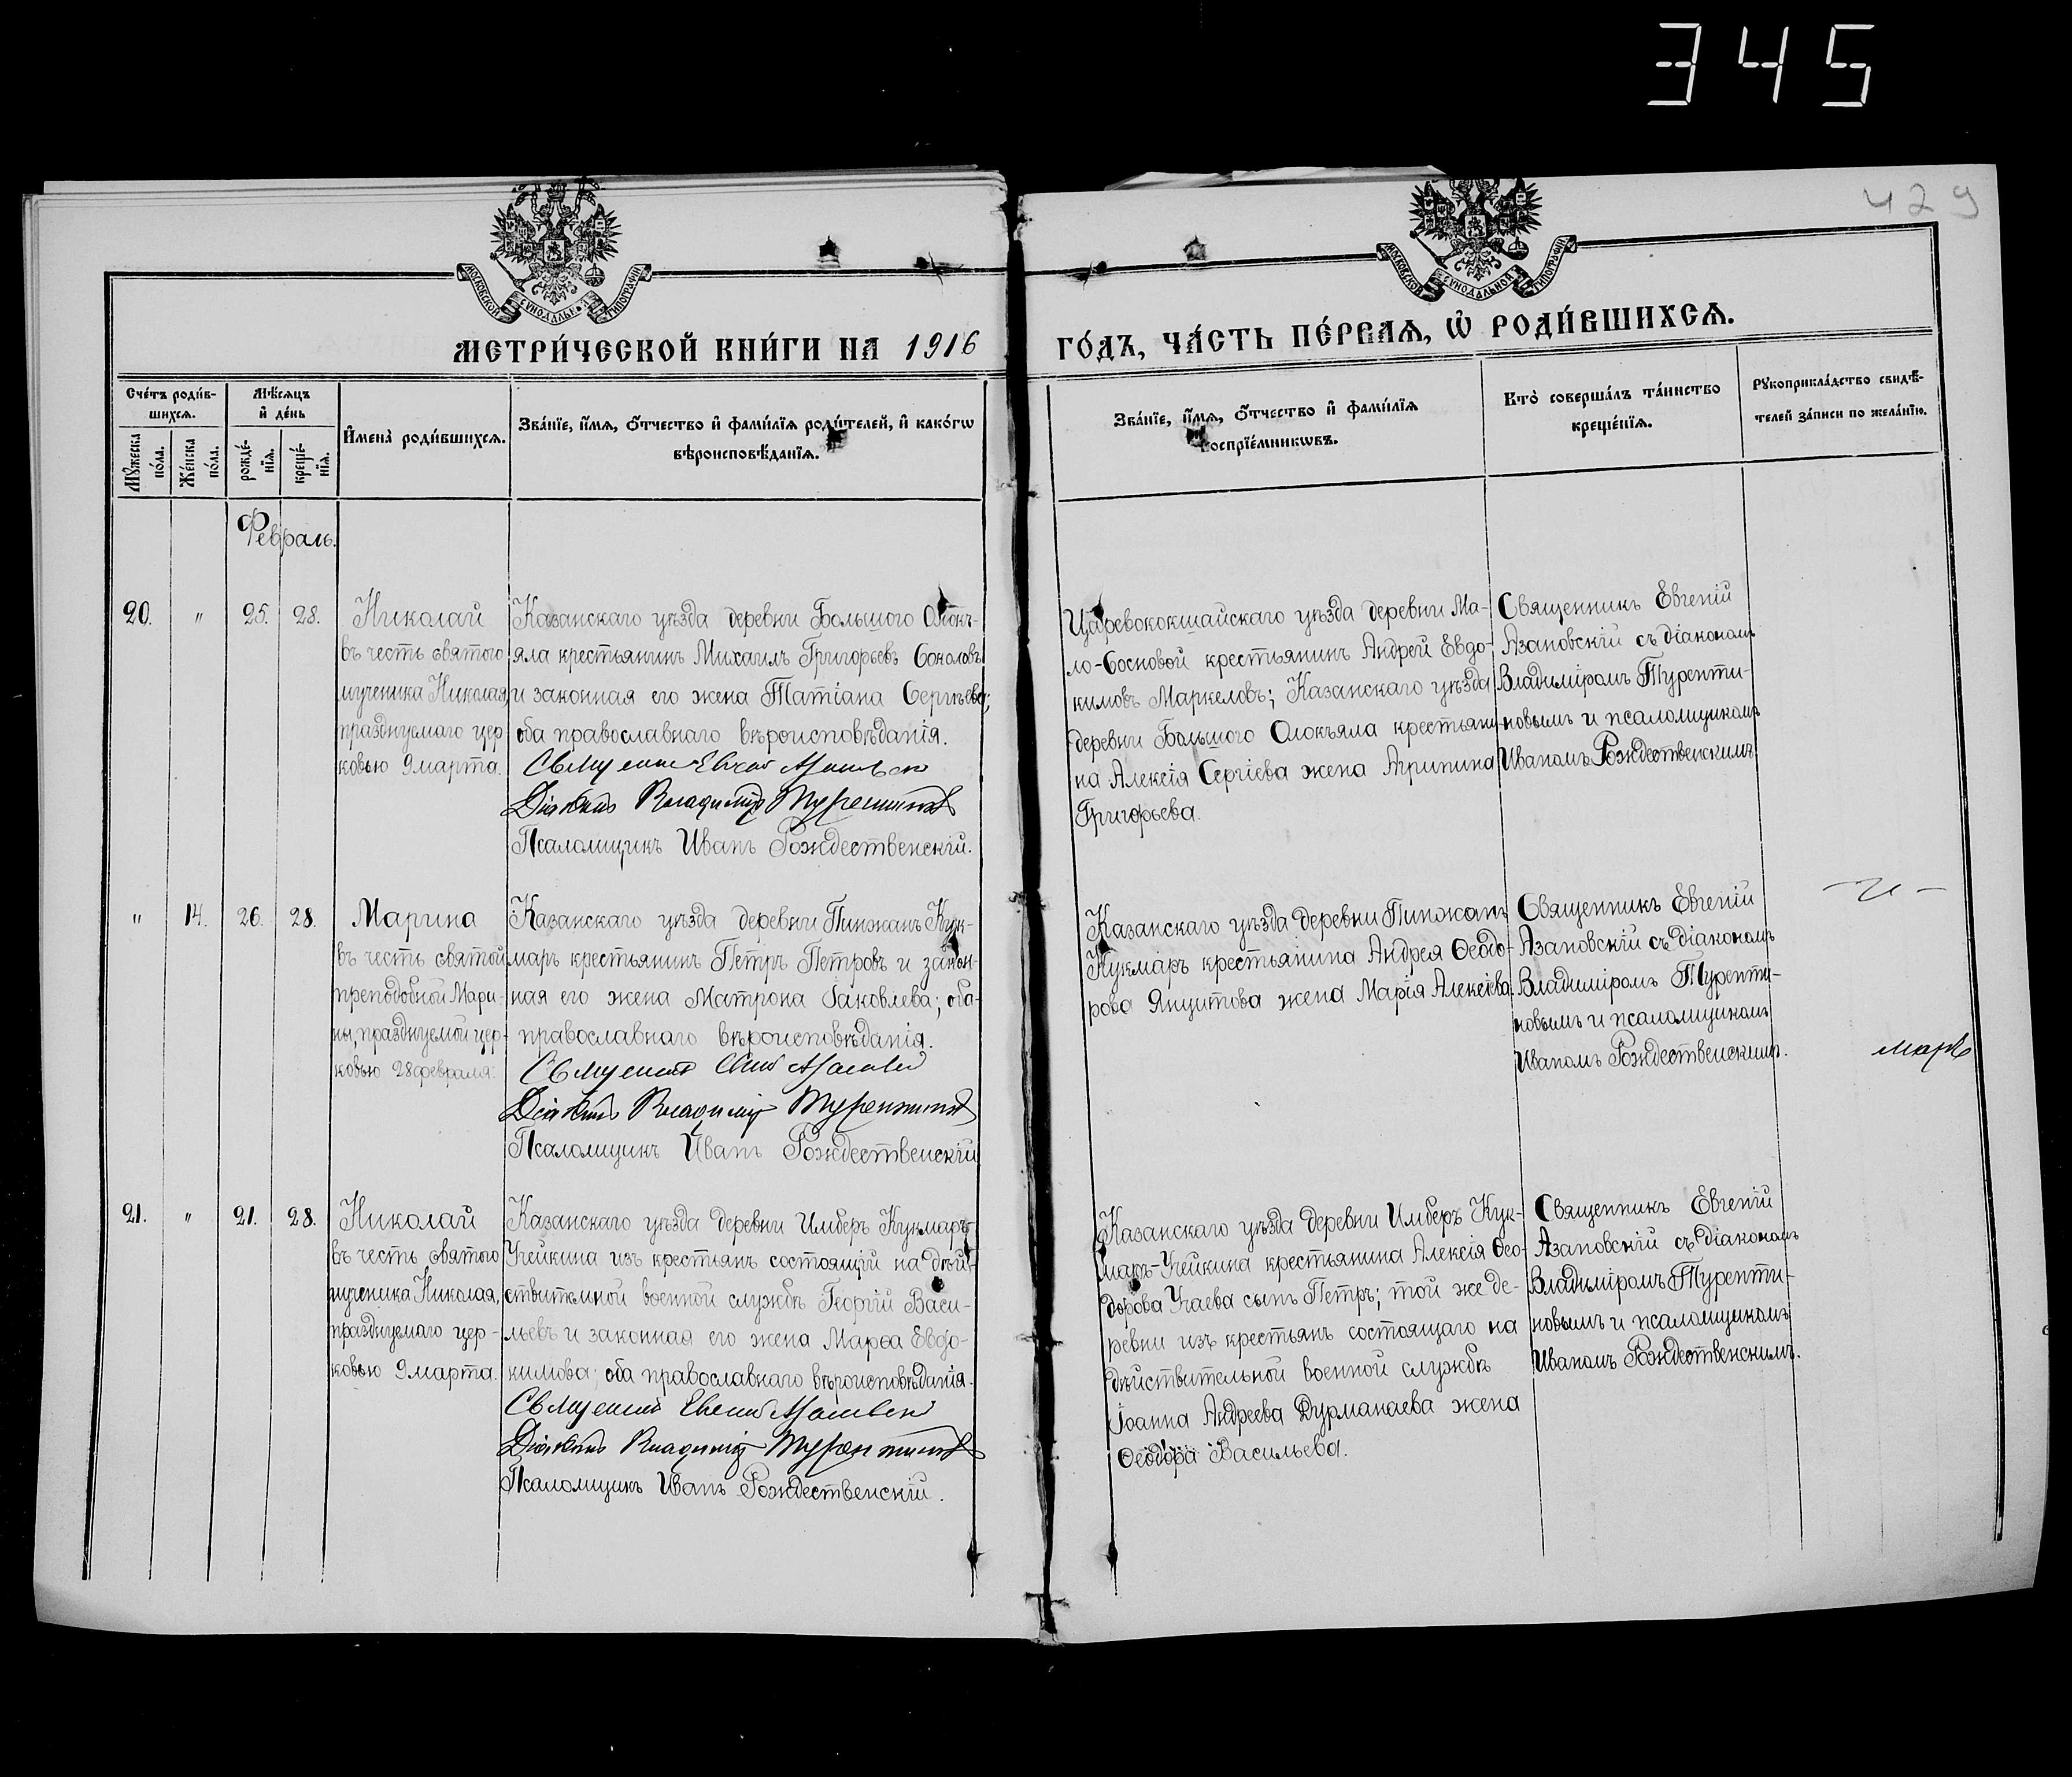 345
429
МОСКОВСКОЙ СѴНОДАЛЬНОЙ ТИПОГРАФІИ
МОСКОВСКОЙ СѴНОДАЛЬНОЙ ТИПОГРАФІИ
МЕТРИ́ЧЕСКОЙ КНИ́ГИ НА 1916 ГО́ДЪ, ЧА́СТЬ ПЕ́РВАѦ, Ѡ҆ РОДИ́ВШИХСѦ.
Сче́тъ роди́в-
шихсѧ.
Мѣ́сѧцъ
и҆ де́нь
Мꙋ́жеска
по́ла.
Же́нска
по́ла.
рожде́-
нїѧ.
креще́-
нїѧ.
И҆мена̀ роди́вшихсѧ.
Зва́нїе, и҆́мѧ, ѻ҆́тчество и҆ фамѝлїѧ роди́телей, и҆ како́гѡ
вѣроисповѣ́данїѧ.
Зва́нїе, и҆́мѧ, ѻ҆́тчество и҆ фамѝлїѧ
воспрїе́мникѡвъ.
Кто̀ соверша́лъ та́инство
креще́нїѧ.
Рꙋкоприкла́дство свидѣ́-
телей за́писи по жела́нїю.
Февраль.
20.
"
25.
28.
Николай
въ честь святого
мученика Николая,
празднуемаго цер
ковью 9 марта.
Казанскаго уѣзда деревни Большого Олокъ-
яла крестьянинъ Михаилъ Григорьевъ Соколовъ
и законная его жена Татіана Сергѣева;
оба православнаго вѣроисповѣданія.
Священникъ Евгеній Азановскій
Діаконъ Владиміръ Турентиновъ
Псаломщикъ Иванъ Рождественскій.
Царевококшайскаго уѣзда деревни Ма-
ло-Сосновой крестьянинъ Андрей Евдо-
кимовъ Маркеловъ; Казанскаго уѣзда
деревни Большого Олокъяла крестьяни-
на Алексія Сергіева жена Агрипина
Григорьева.
Священникъ Евгеній
Азановскій съ діакономъ
Владиміромъ Туренти-
новымъ и псаломщикомъ
Иваномъ Рождественскимъ
"
14.
26.
28.
Марина
въ честь святой
преподобной Мари-
ны, празднуемой цер-
ковью 28 февраля.
Казанскаго уѣзда деревни Пинжанъ Кук-
маръ крестьянинъ Петръ Петровъ и закон-
ная его жена Матрона Іаковлева; оба
православнаго вѣроисповѣданія.
Священникъ Евгеній Азановскій
Діаконъ Владиміръ Турентиновъ
Псаломщикъ Иванъ Рождественскій
Казанскаго уѣзда деревни Пинжанъ
Кукмаръ крестьянина Андрея Ѳеодо-
рова Янцитова жена Марія Алексіева.
Священникъ Евгеній
Азановскій съ діакономъ
Владиміромъ Туренти-
новымъ и псаломщикомъ
Иваномъ Рождественскимъ.
21.
"
21.
28.
Николай
въ честь святого
мученика Николая,
празднуемаго цер-
ковью 9 марта.
Казанскаго уѣзда деревни Имберъ Кукмаръ-
Учейкина изъ крестьянъ состоящій на дѣй-
ствительной военной службѣ Георгій Васи-
льевъ и законная его жена Марѳа Евдо-
кимова; оба православнаго вѣроисповѣданія.
Священникъ Евгеній Азановскій
Діаконъ Владиміръ Турентиновъ
Псаломщикъ Иванъ Рождественскій.
Казанскаго уѣзда деревни Имберъ Кук-
маръ-Учейкина крестьянина Алексія Ѳео-
дорова Учаева сынъ Петръ; той же де-
ревни изъ крестьянъ состоящаго на
дѣйствительной военной службѣ
Іоанна Андреева Дурманаева жена
Ѳеодора Васильева.
Священникъ Евгеній
Азановскій съ діакономъ
Владиміромъ Туренти-
новымъ и псаломщикомъ
Иваномъ Рождественскимъ.